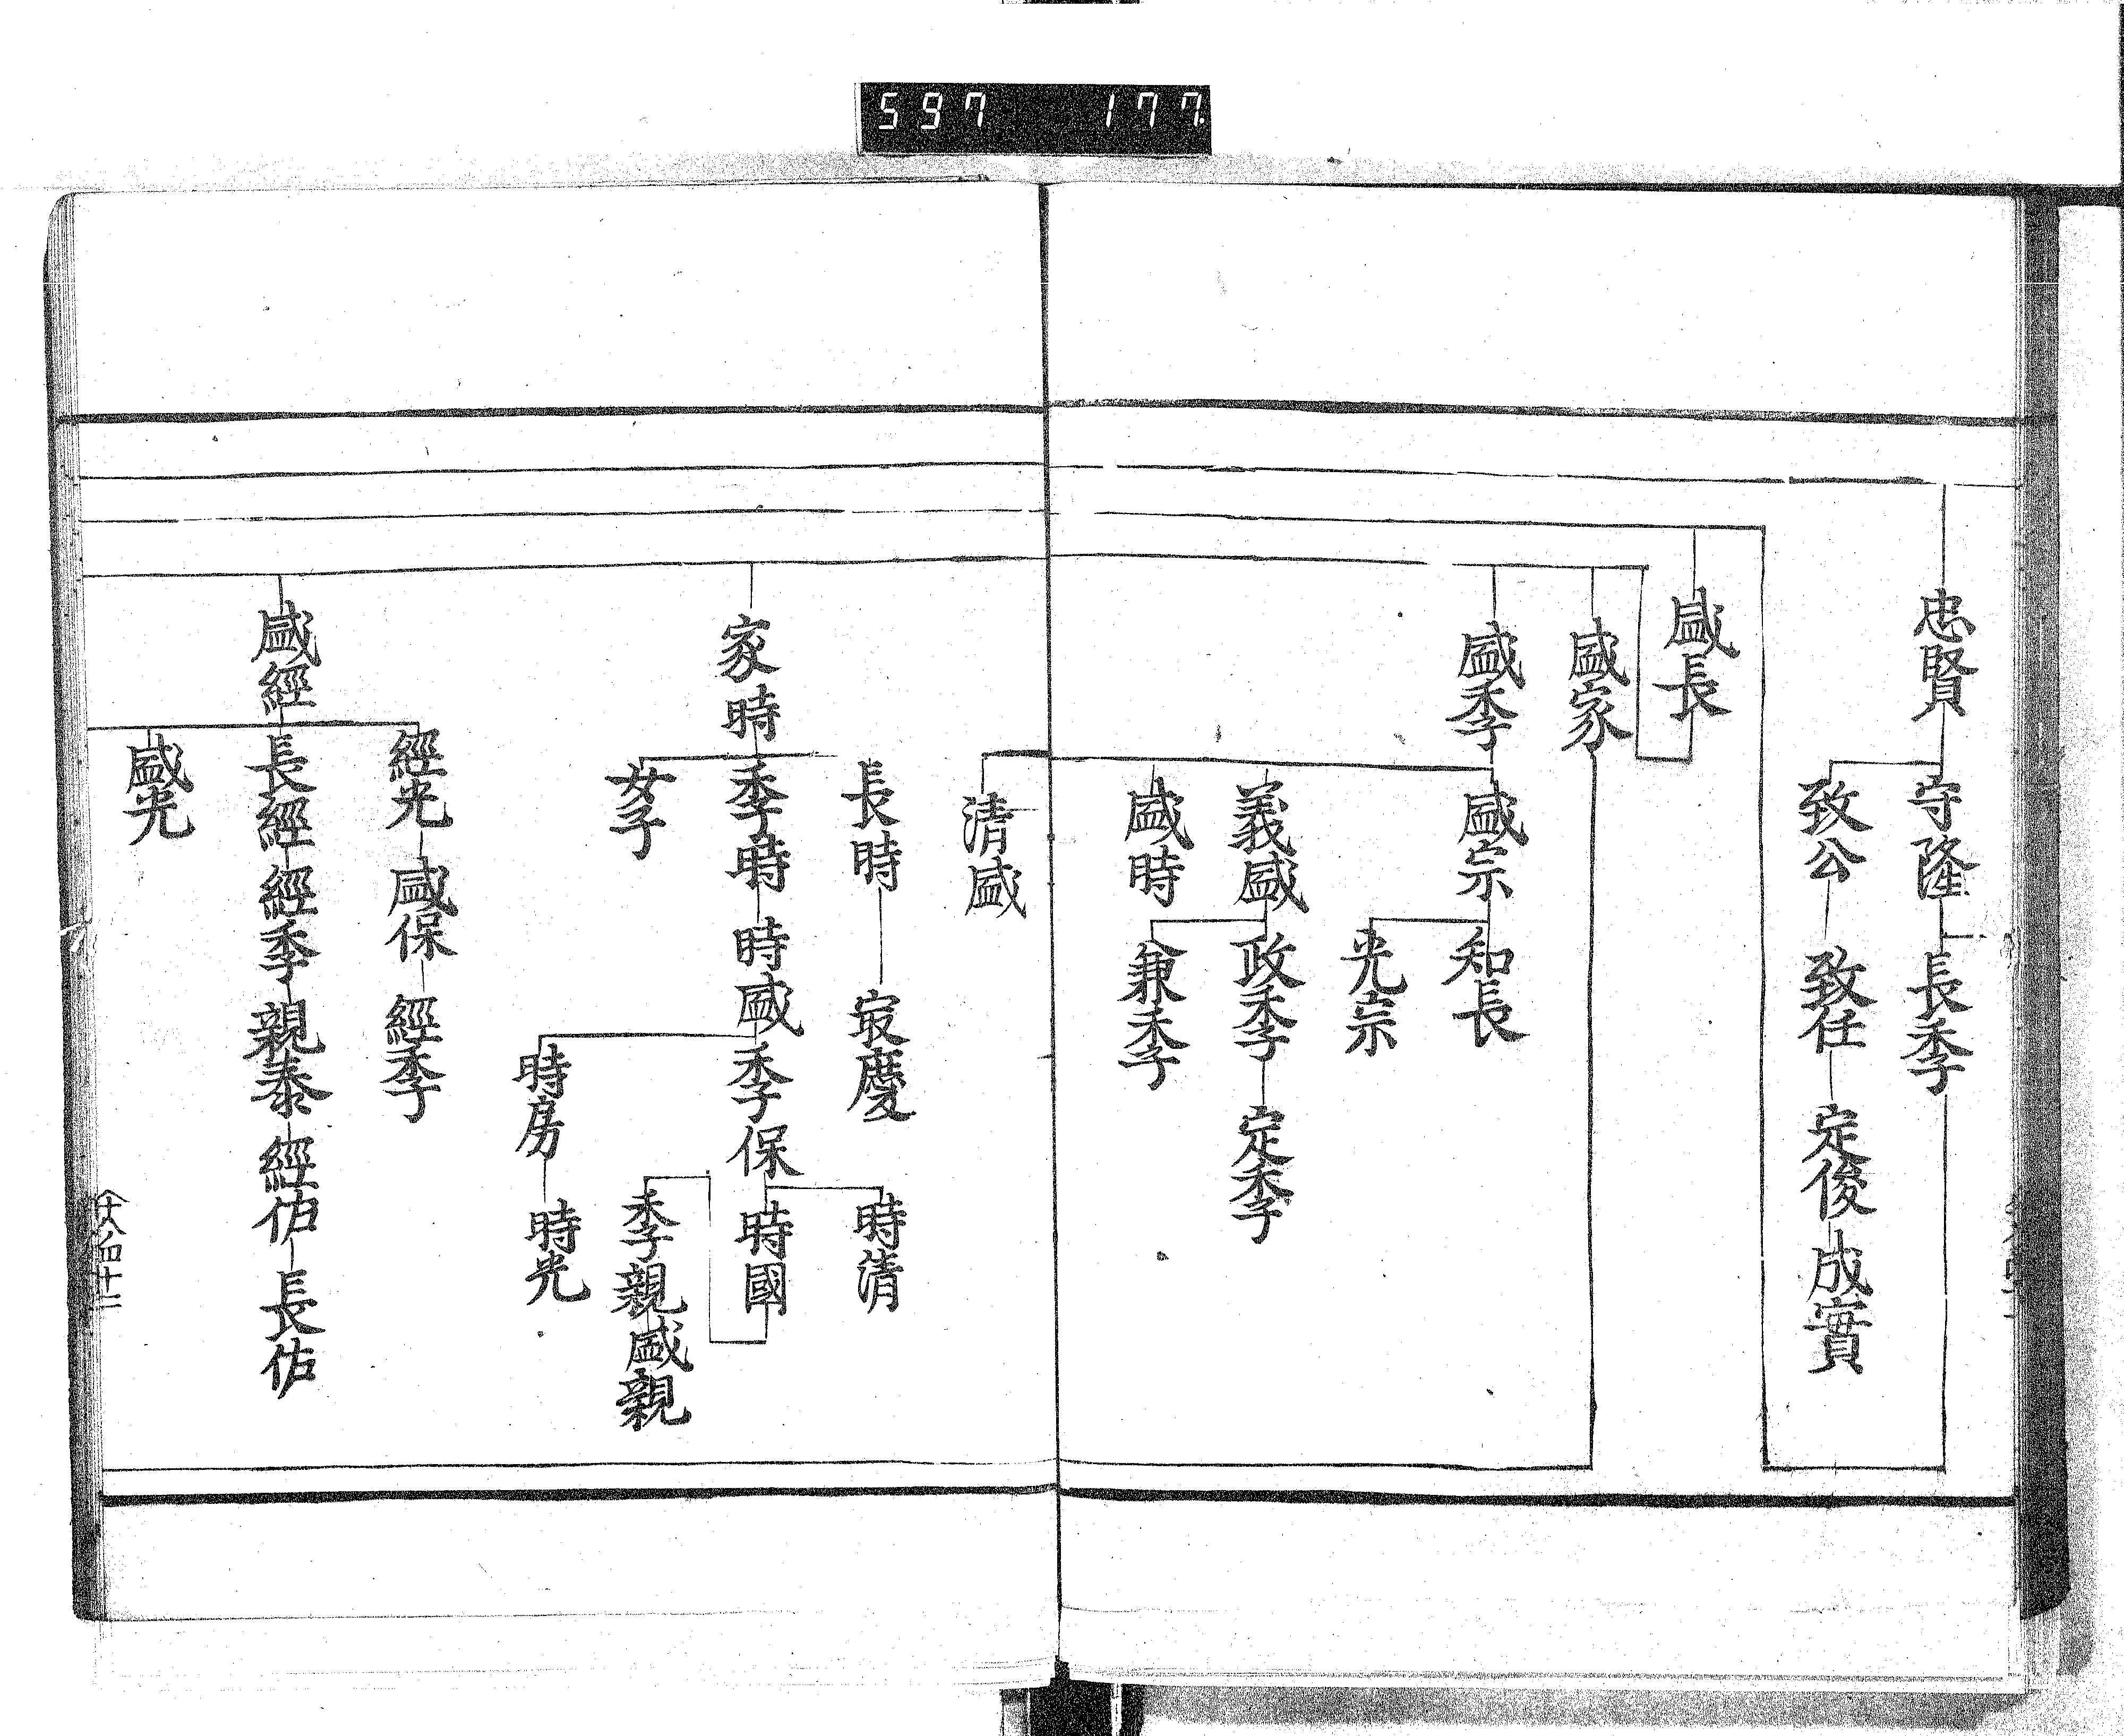 597 177
忠賢
守隆 長季
致公 致任 定俊 成實
盛長
盛家
盛季
盛宗 知長
光宗
義盛 政季 定季
兼季
盛時
清盛
長時 㝡慶
家時 季時 時盛 季保 時國
時清
季親 盛親
女子
時房 時光
經光 盛保 經季
盛經 長經 經季 親泰 經佑 長佑
盛光